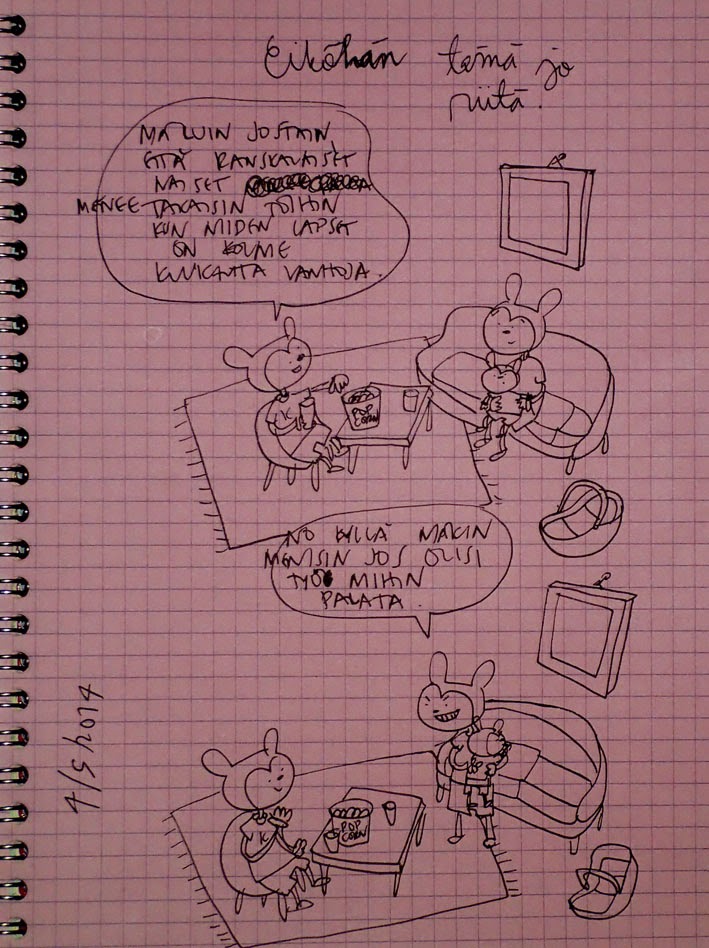 Eiköhän tämä jo
riitä.
MÄ LUIN JOSTAIN,
ETTÄ RANSKALAISET
NAISET
MENEE TAKAISIN TÖIHIN
KUN NIIDEN LAPSET
ON KOLME
KUUKAUTTA VANHOJA.
POP
CORN
NO KYLLÄ MÄKIN
MENISIN JOS OLISI
TYÖ MIHIN
PALATA.
POP
CORN
4/5/2014